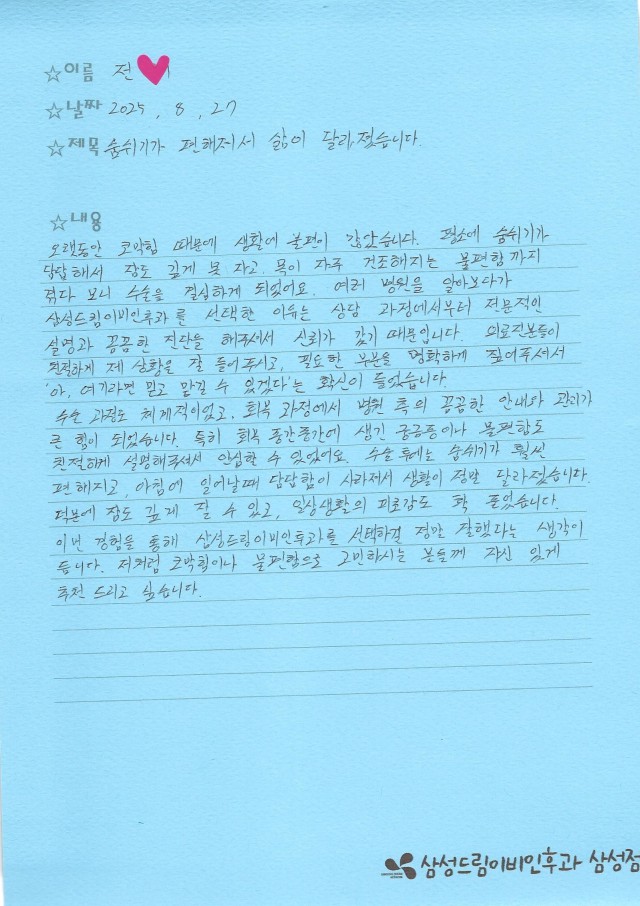 ☆이름 전
☆날짜 2025. 8. 27
☆제목 숨쉬기가 편해져서 삶이 달라졌습니다.
☆내용
오랫동안 코막힘 때문에 생활에 불편이 많았습니다. 평소에 숨쉬기가
답답해서 잠도 깊게 못 자고, 목이 자주 건조해지는 불편함까지
겪다 보니 수술을 결심하게 되었어요. 여러 병원을 알아보다가
삼성드림이비인후과를 선택한 이유는 상담 과정에서부터 전문적인
설명과 꼼꼼한 진단을 해주셔서 신뢰가 갔기 때문입니다. 의료진분들이
친절하게 제 상황을 잘 들어주시고, 필요한 부분을 명확하게 짚어주셔서
'아, 여기라면 믿고 맡길 수 있겠다'는 확신이 들었습니다.
수술 과정도 체계적이었고, 회복 과정에서 병원 측의 꼼꼼한 안내와 관리가
큰 힘이 되었습니다. 특히 회복 중간중간에 생긴 궁금증이나 불편함도
친절하게 설명해주셔서 안심할 수 있었어요. 수술 후에는 숨쉬기가 훨씬
편해지고, 아침에 일어날때 답답함이 사라져서 생활이 정말 달라졌습니다.
덕분에 잠도 깊게 잘 수 있고, 일상생활의 피로감도 확 줄었습니다.
이번 경험을 통해 삼성드림이비인후과를 선택하길 정말 잘했다는 생각이
듭니다. 저처럼 코막힘이나 불편함으로 고민하시는 분들께 자신 있게
추천 드리고 싶습니다.
삼성드림이비인후과 삼성점